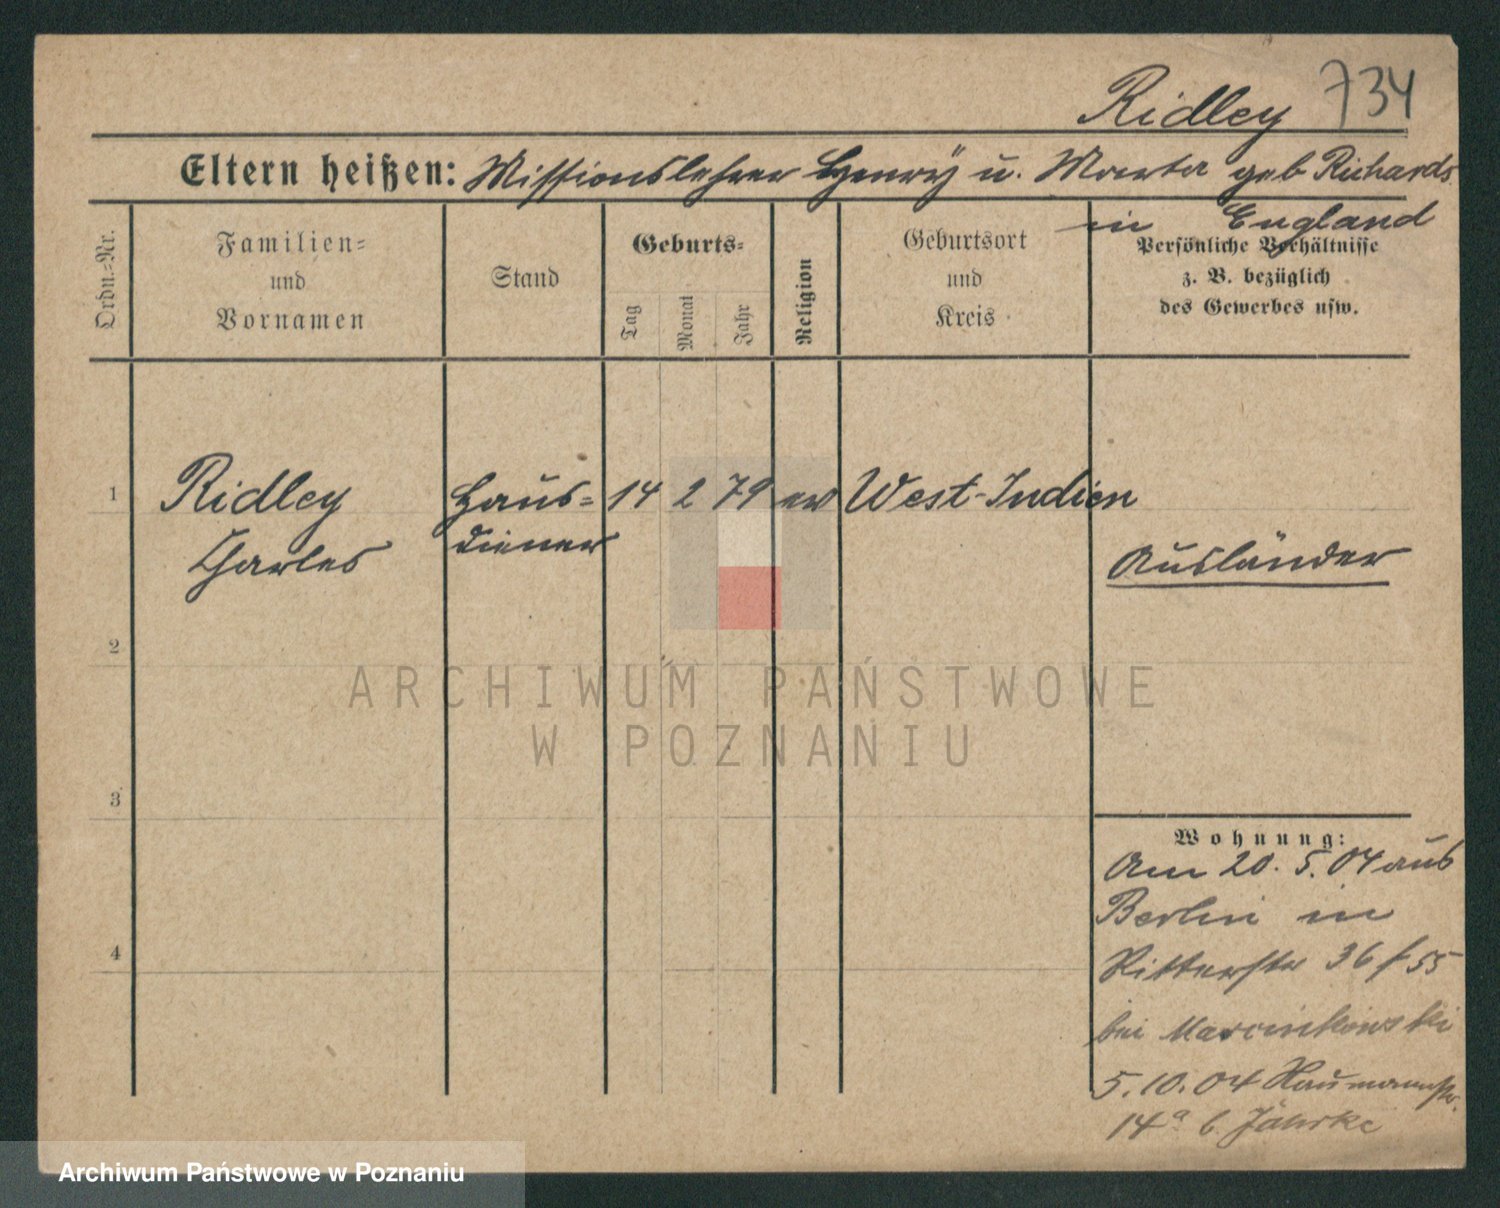 Ridley 734
Eltern heißen: Missionslehrer Henry u. Marta geb Richards
in England
Ordn.=Nr.
Familien=
und
Vornamen
Stand
Geburts=
Tag
Monat
Jahr
Religion
Geburtsort
und
Kreis
Persönliche Verhältnisse
z. B. bezüglich
des Gewerbes usw.
1 Ridley Haus= 14 2 79 ev West-Indien
Charles diener
Ausländer
2
3
4
Wohnung:
Am 20. 5. 04 aus
Berlin in
Ritterstr 36
bei Marcinkowski
5. 10. 04 Naumannstr.
14a b. Jährke
ARCHIWUM PAŃSTWOWE
W POZNANIU
Archiwum Państwowe w Poznaniu